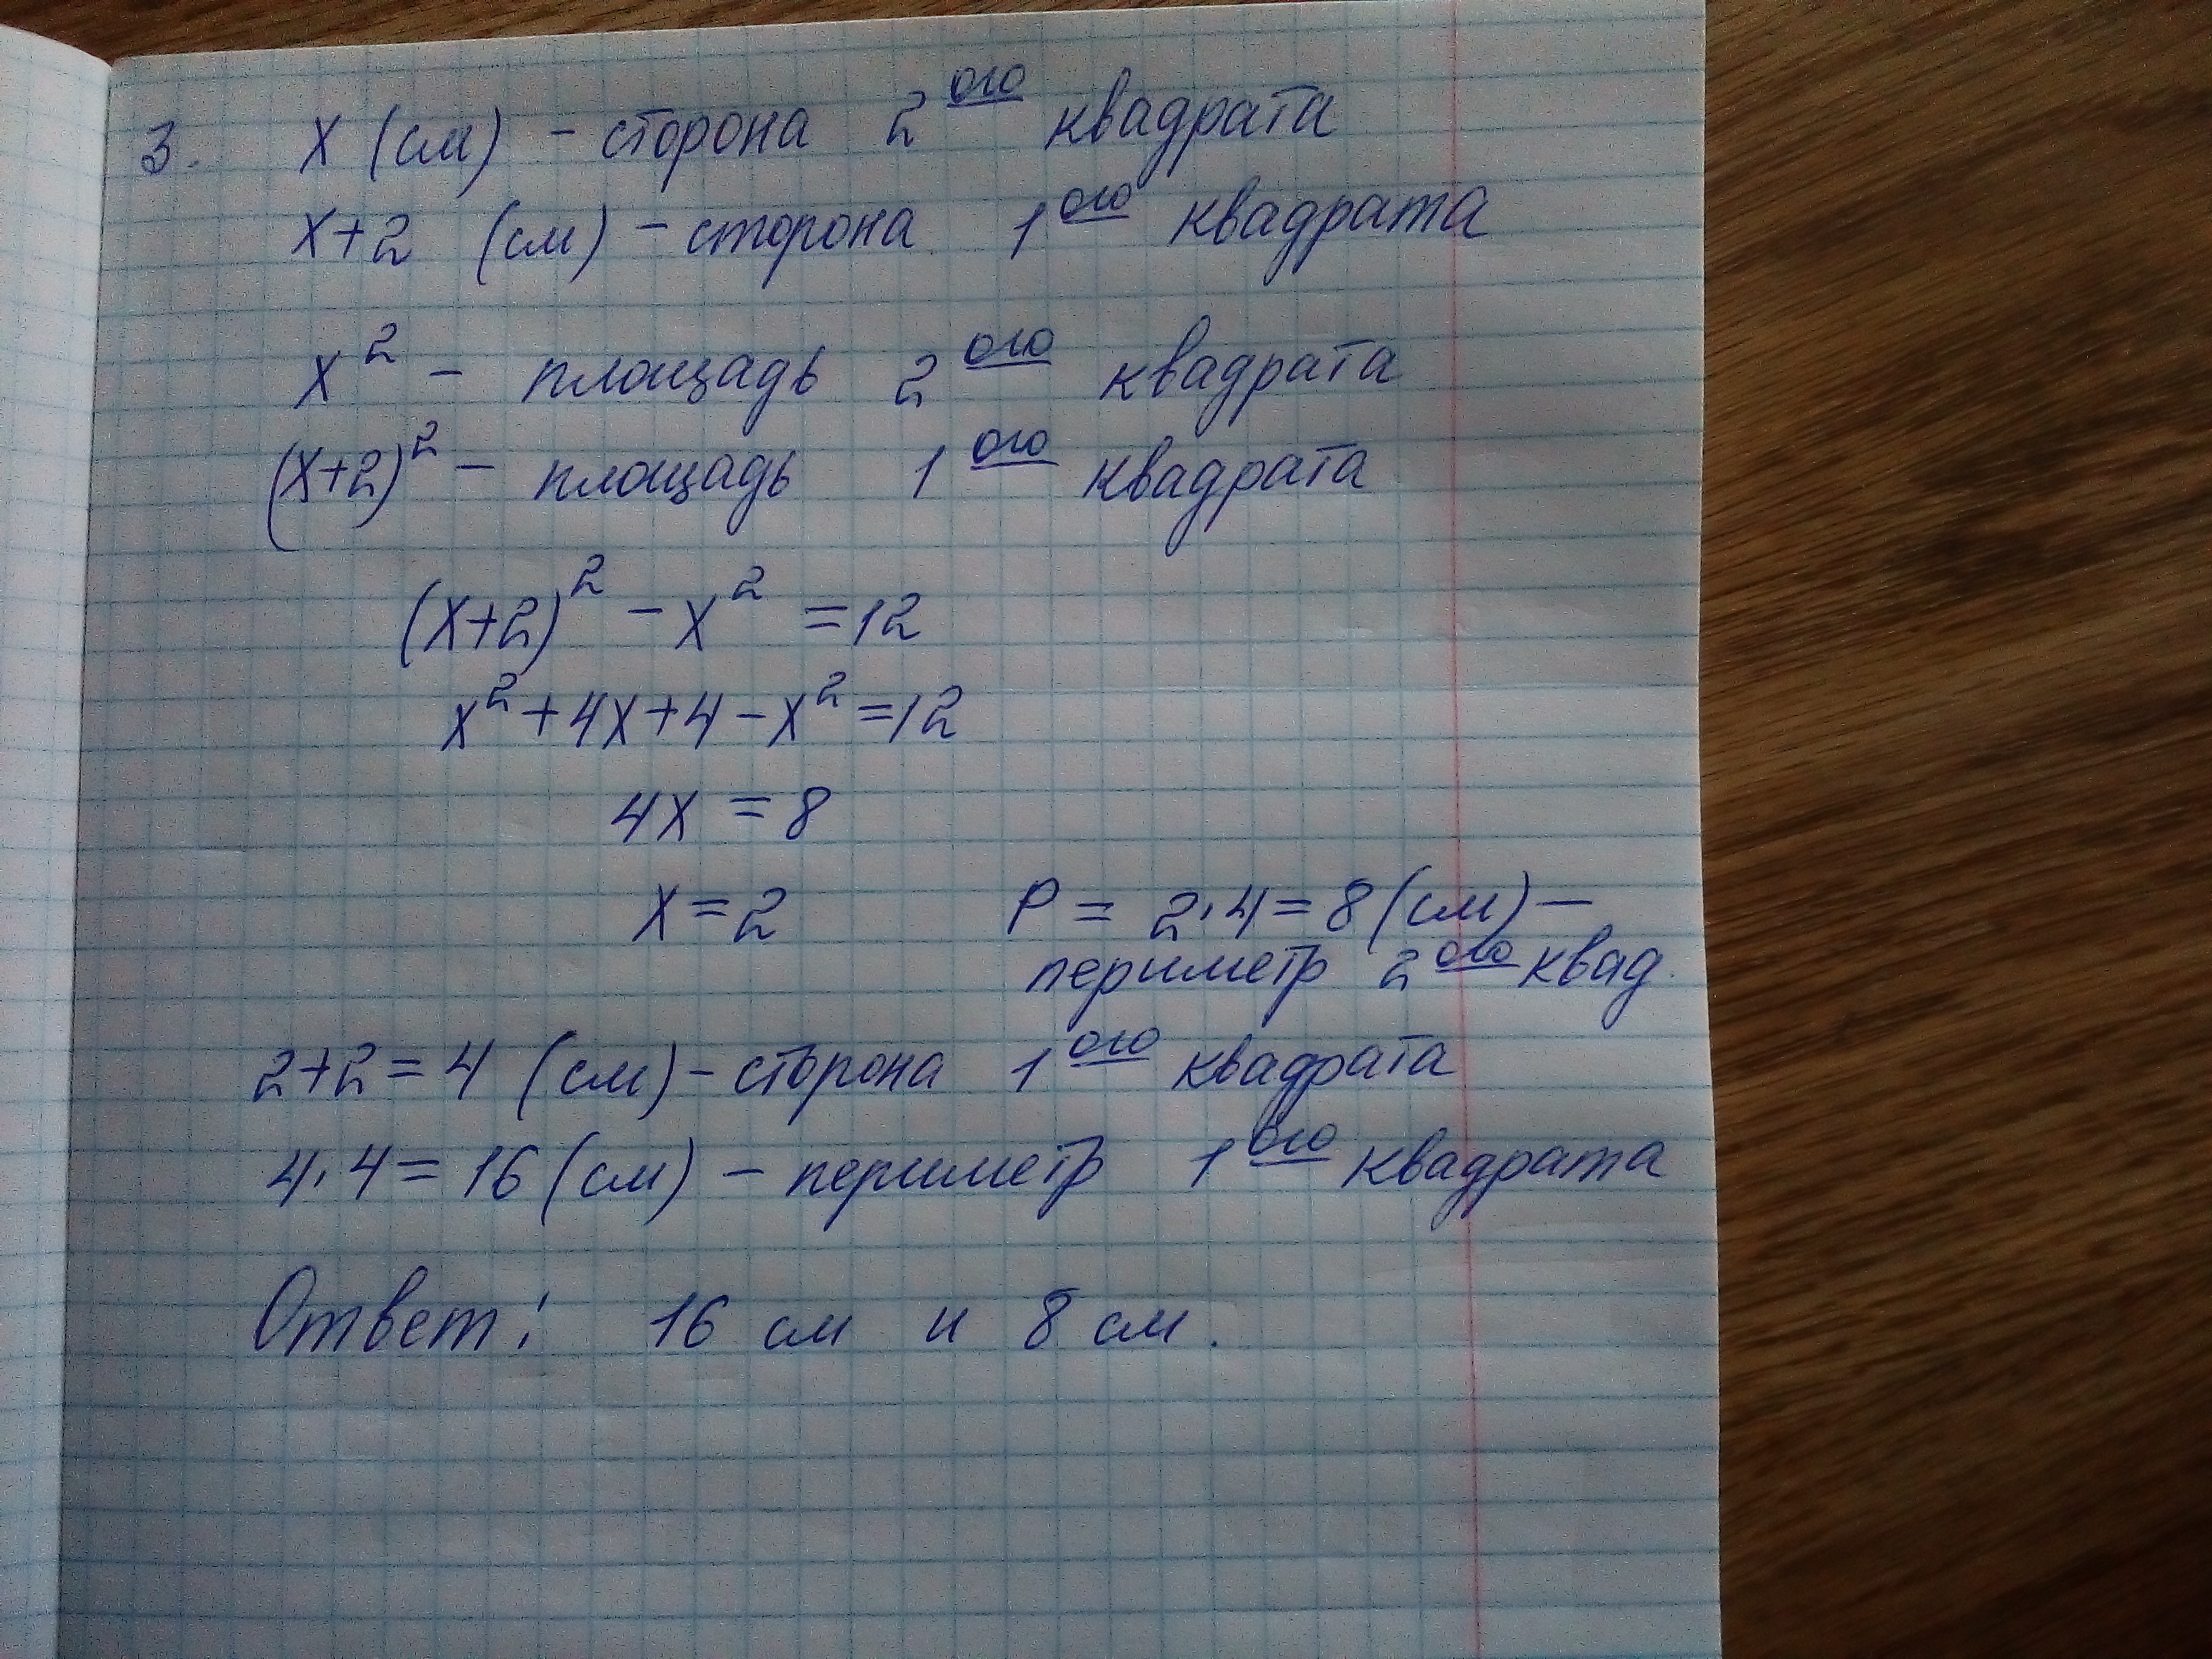 3. x (см) - сторона 2ого квадрата
x+2 (см) - сторона 1ого квадрата
x² - площадь 2ого квадрата
(x+2)² - площадь 1ого квадрата
(x+2)² - x² = 12
x² + 4x + 4 - x² = 12
4x = 8
x = 2 P = 2·4 = 8 (см) -
периметр 2ого квад.
2+2 = 4 (см) - сторона 1ого квадрата
4·4 = 16 (см) - периметр 1ого квадрата
Ответ: 16 см и 8 см.